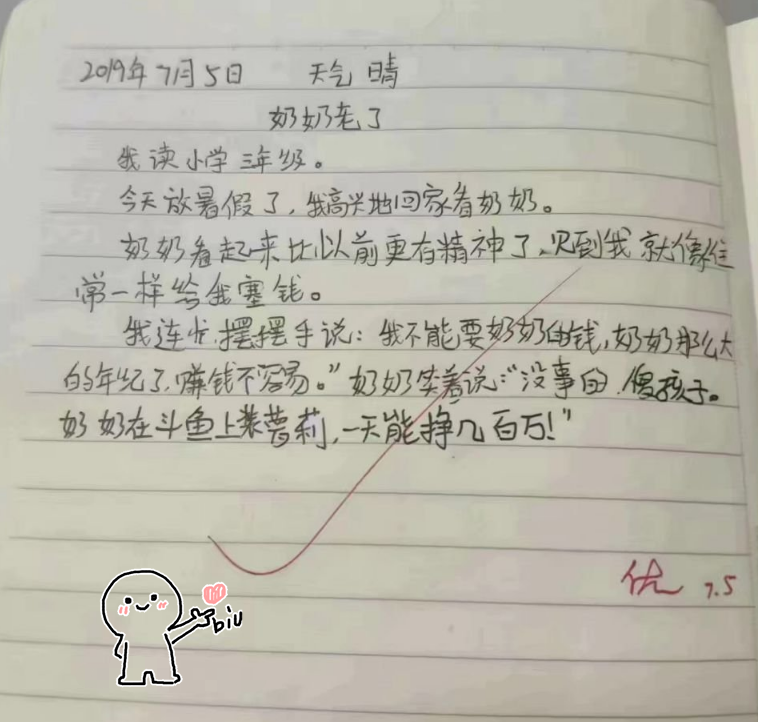 2019年7月5日 天气 晴
奶奶老了
我读小学三年级。
今天放暑假了，我高兴地回家看奶奶。
奶奶看起来比以前更有精神了，见到我就像往
常一样给我塞钱。
我连忙摆摆手说：我不能要奶奶的钱，奶奶那么大
的年纪了，赚钱不容易。”奶奶笑着说：“没事的，傻孩子。
奶奶在斗鱼上装萝莉，一天能挣几百万！”
优 7.5
biu